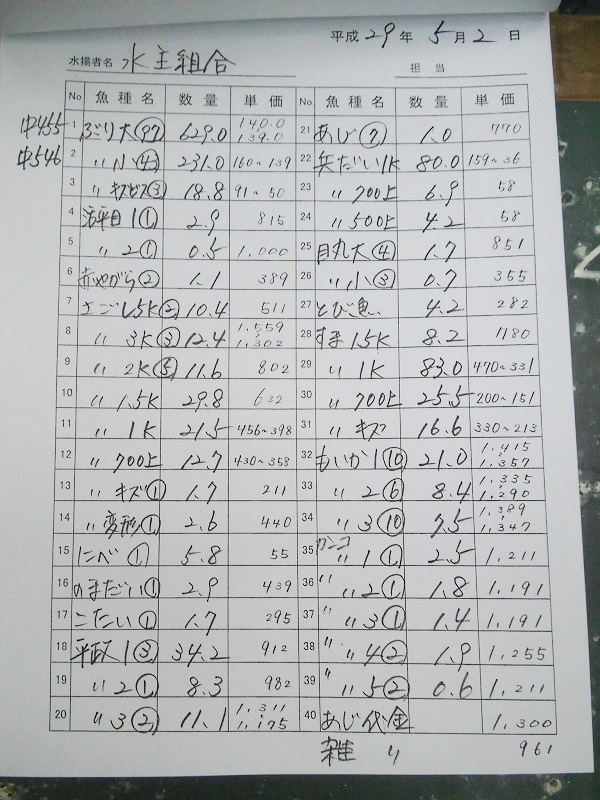 平成 29 年 5 月 2 日
水揚者名 水主組合 担当
No 魚種名 数量 単価
中455 1 ぶり大(97) 629.0 140.0 139.0
中546 2 〃小(43) 231.0 160~139
3 〃キズビス(3) 18.8 91~50
4 活平目1(1) 2.9 815
5 〃2(1) 0.5 1,000
6 赤やがら(2) 1.1 389
7 さごし5K(2) 10.4 511
8 〃3K(3) 12.4 1,559~1,302
9 〃2K(5) 11.6 802
10 〃1.5K 29.8 632
11 〃1K 21.5 456~398
12 〃700上 12.7 430~358
13 〃キズ(1) 1.7 211
14 〃変形(1) 2.6 440
15 にべ(1) 5.8 55
16 のまだい(1) 2.9 439
17 こたい(1) 1.7 295
18 平政1(3) 34.2 912
19 〃2(1) 8.3 982
20 〃3(2) 11.1 1,311~1,175
No 魚種名 数量 単価
21 あじ(7) 1.0 770
22 兵だい1K 80.0 159~36
23 〃700上 6.9 58
24 〃500上 4.2 58
25 目丸大(4) 1.7 851
26 〃小(3) 0.7 355
27 とび魚 4.2 282
28 すま1.5K 8.2 1180
29 〃1K 83.0 470~331
30 〃700上 25.5 200~151
31 〃キズ 16.6 330~213
32 もいか1(10) 21.0 1,415~1,357
33 〃2(6) 8.4 1,335~1,290
34 〃3(10) 7.5 1,389~1,347
35 カンコ〃1(1) 2.5 1,211
36 〃〃2(1) 1.8 1,191
37 〃〃3(1) 1.4 1,191
38 〃〃4(2) 1.9 1,255
39 〃〃5(2) 0.6 1,211
40 あじ代金 1,300
雑 〃 961